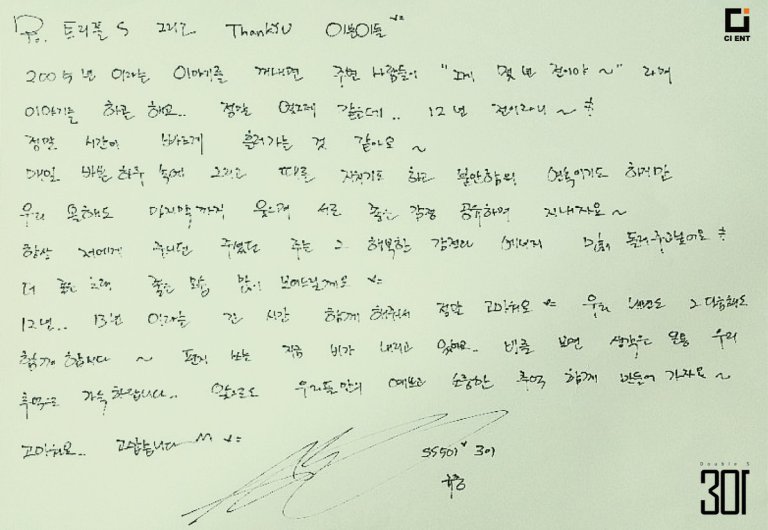 To. 트리플 S 그리고 ThankYU 이분이들
CI ENT
2005년 이라는 이야기를 꺼내면 주변 사람들이 "그게 몇 년 전이야~" 라며
이야기를 하곤 해요.. 정말 엊그제 같은데.. 12년 전이라니~
정말 시간이 빠르게 흘러가는 것 같아요~
매일 바쁜 하루 속에 그리고 때론 지치기도 하고 불안함의 연속이기도 하지만
우리 올해도 마지막까지 웃으며 서로 좋은 감정 공유하며 지내자요~
항상 저에게 주시던 주셨던 주는 그 행복한 감정과 에너지 돌려주고싶어요
더 좋은 노래 좋은 모습 많이 보여드릴게요
12년.. 13년 이라는 긴 시간 함께 해주셔서 정말 고마워요 우리 내년도 그 다음해도
함께 합시다 ~ 편지 쓰는 지금 비가 내리고 있어요.. 비를 보면 생각은 온통 우리
추억으로 가득하답니다.. 앞으로도 우리들만의 예쁘고 소중한 추억 함께 만들어 가자요~
고마워요.. 고맙습니다 ^^
SS501 301
규종
Double S
301